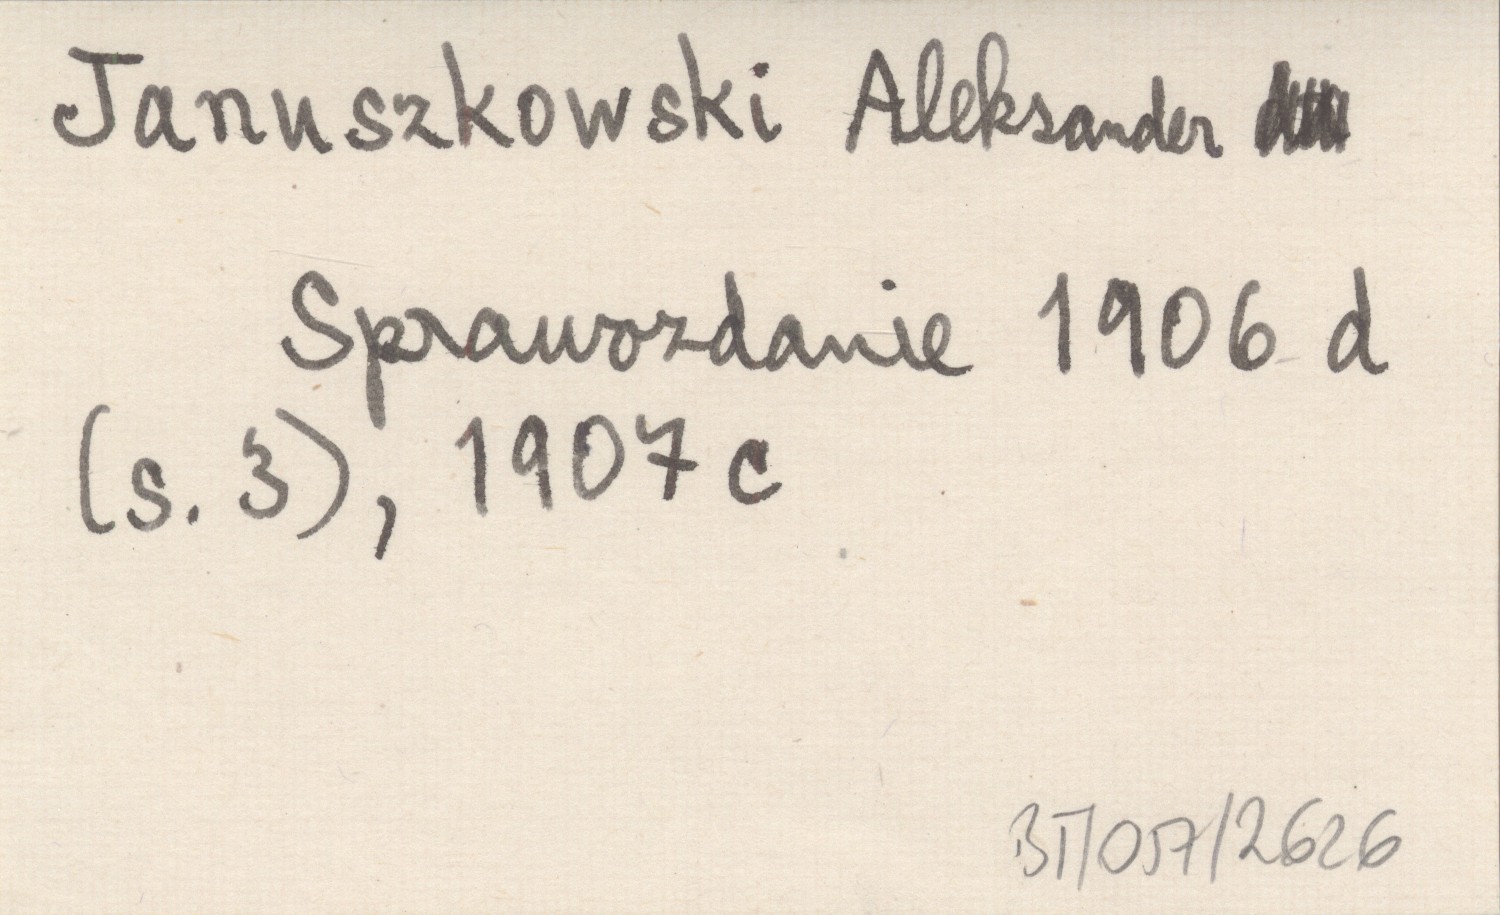 Januszkowski Aleksander
Sprawozdanie 1906 d
(s. 3), 1907 c
BT/057/2626